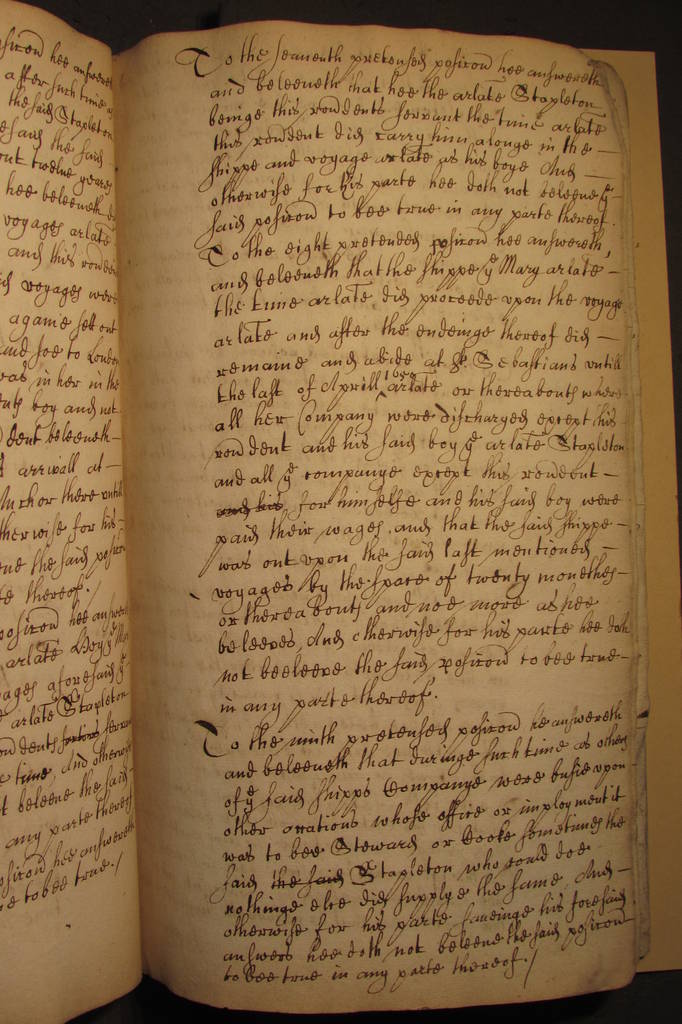 osicon hee answereth
after such time a
the said Stapleton
said the said
out twelue yeares
hee beleeueth
voyages arlate
and this ronden
voyages were
againe sett out
and soe to London
was in her in the
boy and not
dent beleeueth
arrivall at
Anchor there untill
herwise for his
the said posicon
thereof./
posicon hee answereth
arlate Boy ye Mary
ages aforesaid ye
arlate Stapleton
ondents servant
time, And otherwise
beleeue the said
any parte thereof
osicon hee answereth
to bee true./
To the seaventh pretensed posicon hee answereth
and beleeueth that hee the arlate Stapleton
beinge this rondents servant the time arlate
this rondent did carry him alonge in the
shippe and voyage arlate as his boye And
otherwise for his parte hee doth not beleeue ye
said posicon to bee true in any parte thereof.
To the eight pretended posicon hee answereth,
and beleeueth that the shippe ye Mary arlate
the time arlate did proceede upon the voyage
arlate and after the endeinge thereof did
remaine and abide at St. Sebastians untill
the last of Aprill arlate or thereabouts where
all her Company were discharged except this
rondent and his said boy ye arlate Stapleton
and all ye companye except this rondent
and his for himselfe and his said boy were
paid their wages, and that the said shippe
was out upon the said last mentioned
voyages by the space of twenty monethes
or thereabouts and noe more as hee
beleeves, And otherwise for his parte hee doth
not beeleeve the said posicon to bee true
in any parte thereof.
To the ninth pretensed posicon he answereth
and beleeueth that duringe such time as others
of ye said shipps Companye were busie upon
other occations whose office or imployment it
was to bee Steward or Cooke sometimes the
said the said Stapleton who could doe
nothinge else did supplye the same. And
otherwise for his parte saueinge his foresaid
answers hee doth not beleeue the said posicon
to bee true in any parte thereof./